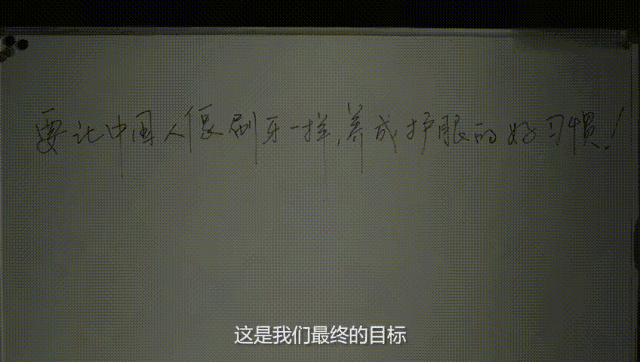 要让中国人像刷牙一样,养成护眼的好习惯!
这是我们最终的目标